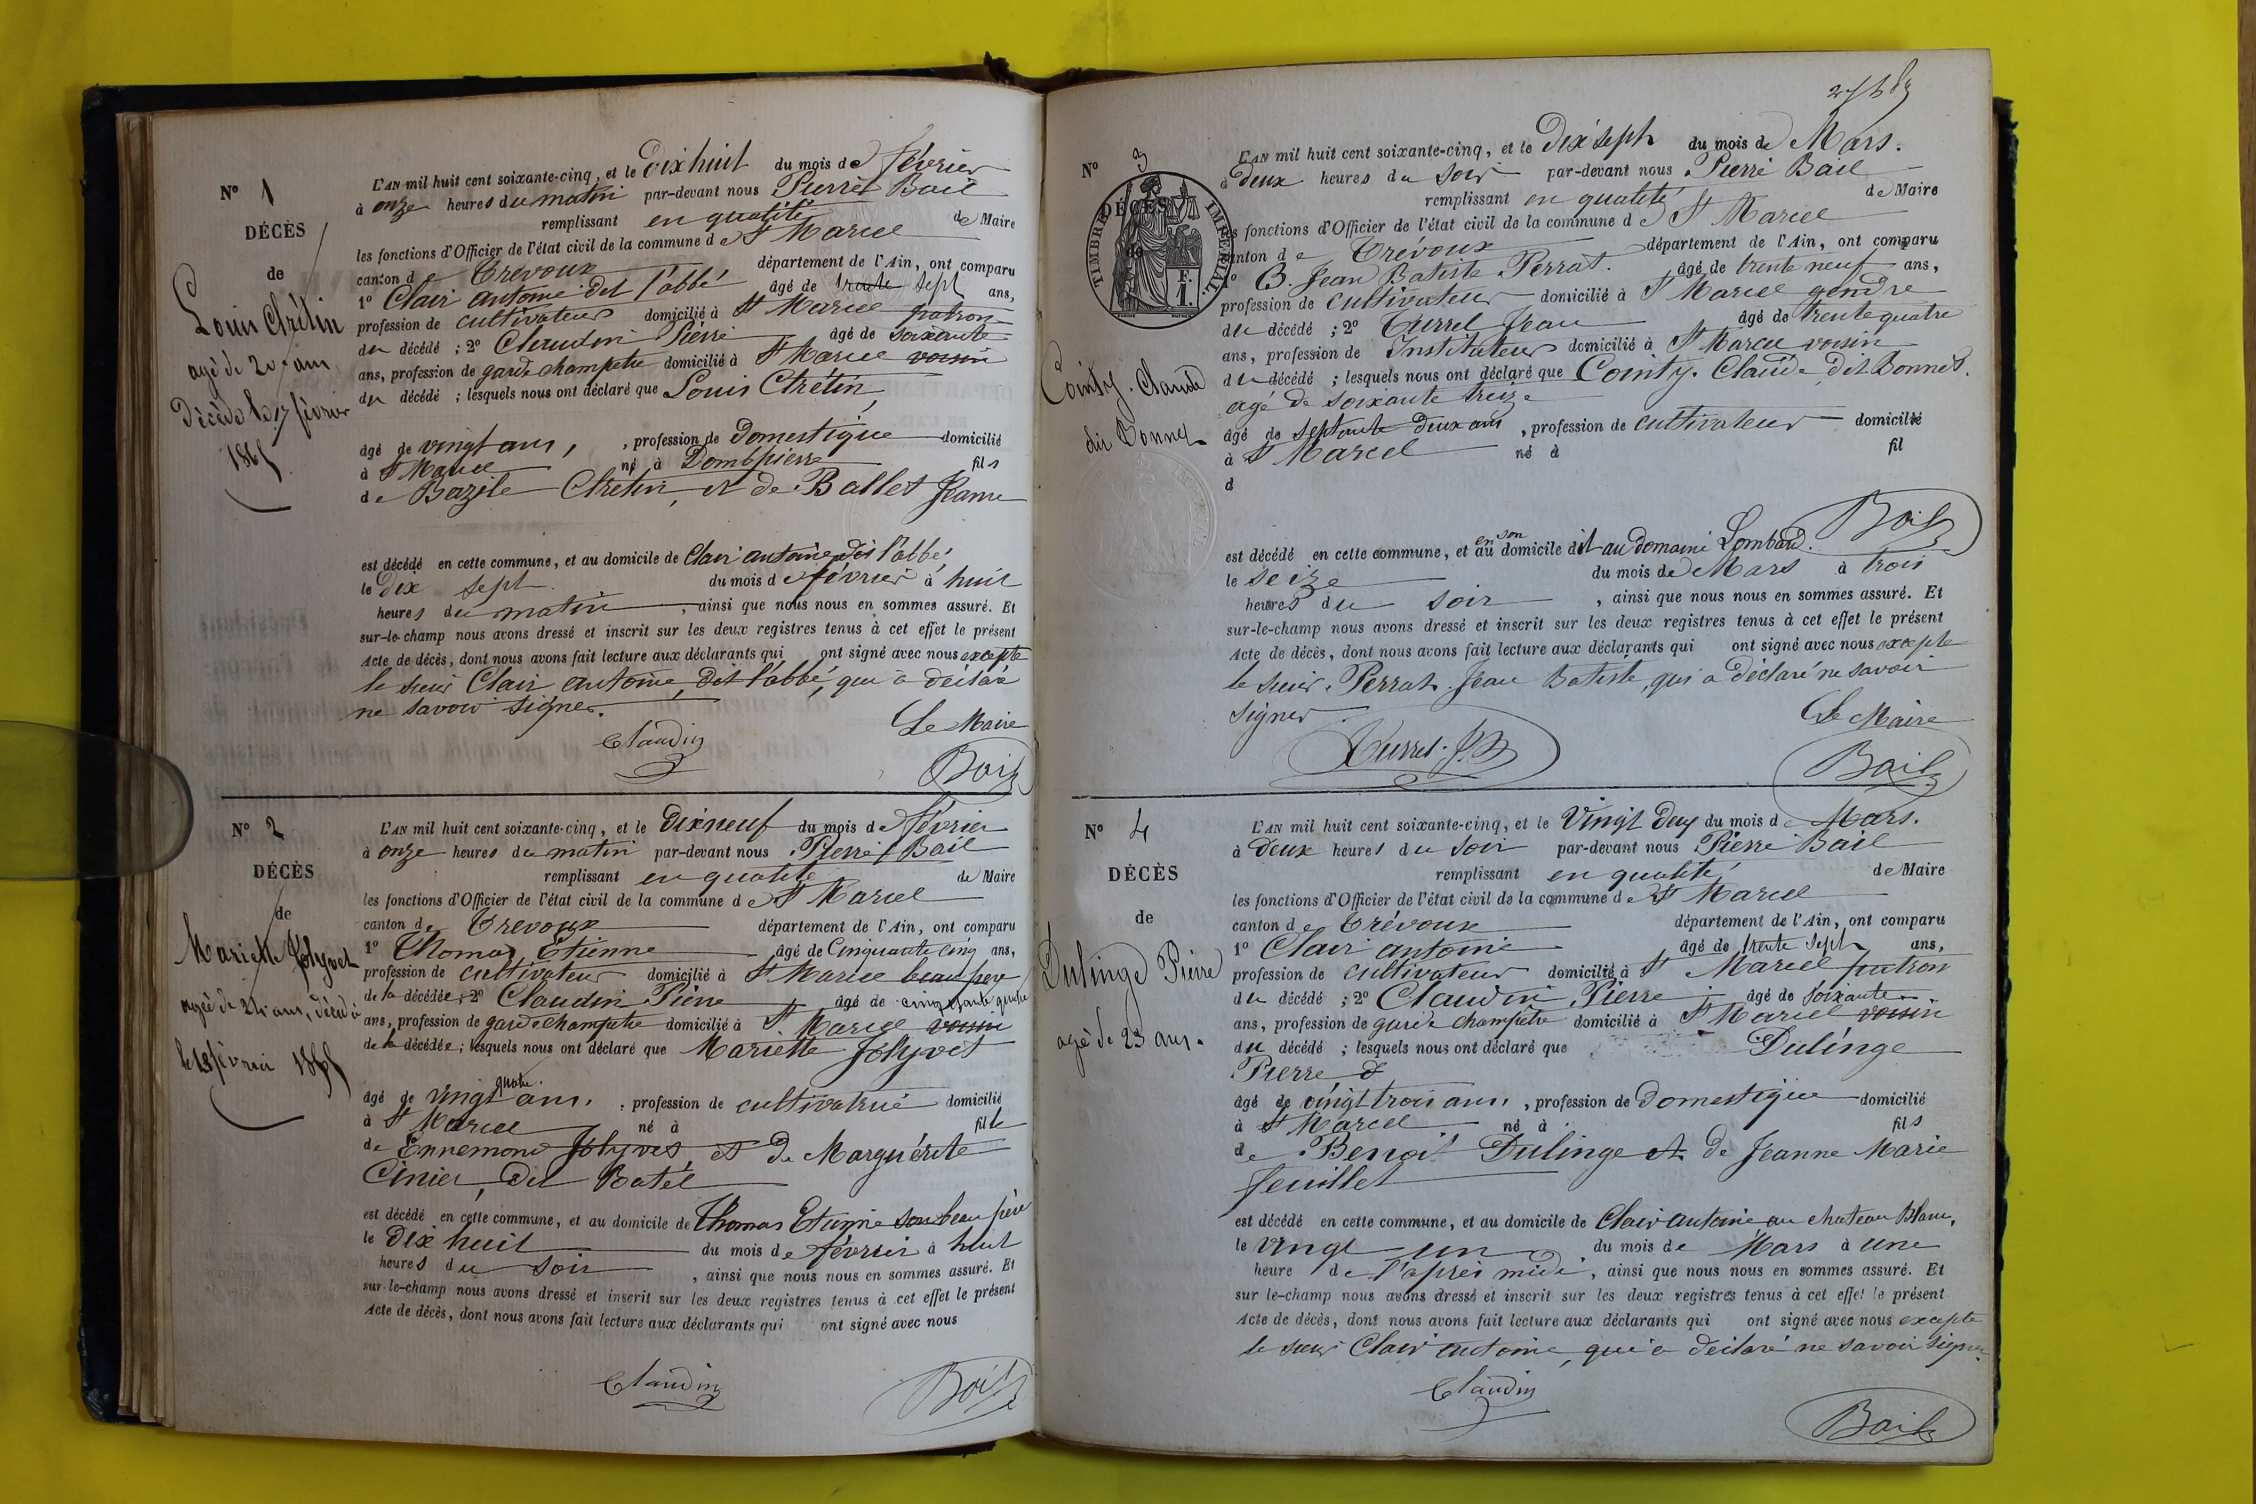 N° 1
DÉCÈS
de
Louis Chrétin
agé de 20 ans
Décédé le 17 février
1865
L'AN mil huit cent soixante-cinq, et le dix huit du mois de février
à onze heures du matin par-devant nous Pierre Bail
remplissant en qualité de Maire
les fonctions d'Officier de l'état civil de la commune de St Marcel
canton de Trévoux département de l'Ain, ont comparu
1° Clair antoine dit l'abbé âgé de trente sept ans,
profession de cultivateur domicilié à St Marcel patron
du décédé ; 2° Claudin Pierre âgé de soixante
ans, profession de garde champetre domicilié à St Marcel voisin
du décédé ; lesquels nous ont déclaré que Louis Chrétin,
âgé de vingt ans, , profession de Domestique domicilié
à St Marcel né à Dombpierre fils
de Bazile Chretin, et de Ballet Jeanne
est décédé en cette commune, et au domicile de Clair antoine dit l'abbé,
le Dix sept du mois de février à huit
heures du matin , ainsi que nous nous en sommes assuré. Et
sur-le-champ nous avons dressé et inscrit sur les deux registres tenus à cet effet le présent
Acte de décès, dont nous avons fait lecture aux déclarants qui ont signé avec nous excepte
le sieur Clair antoine dit l'abbé, qui a déclaré
ne savoir signer.
Le Maire
Claudin
Bail
N° 2
DÉCÈS
de
Mariette Jolyvet
agée de 24 ans, décédé
le 18 février 1865
L'AN mil huit cent soixante-cinq, et le dix neuf du mois de février
à onze heures du matin par-devant nous Pierre Bail
remplissant en qualité de Maire
les fonctions d'Officier de l'état civil de la commune de St Marcel
canton de Trevoux département de l'Ain, ont comparu
1° Thomas Etienne âgé de Cinquante cinq ans,
profession de cultivateur domicilié à St Marcel beau père
de la décédée ; 2° Claudin Pierre âgé de
ans, profession de garde champetre domicilié à St Marcel voisin
de la décédée ; lesquels nous ont déclaré que Mariette Jolyvet
quatre.
âgé de vingt ans, , profession de cultivatrice domicilié
à St Marcel né à fille
de Ennemond Jolyvet, et de Marguérite
Cinier, dit Batel
est décédé en cette commune, et au domicile de Thomas Etienne son beau père
le Dix huit du mois de février à huit
heures du soir , ainsi que nous nous en sommes assuré. Et
sur-le-champ nous avons dressé et inscrit sur les deux registres tenus à cet effet le présent
Acte de décès, dont nous avons fait lecture aux déclarants qui ont signé avec nous
Claudin
Bail
N° 3
DÉCÈS
de
TIMBRE IMPÉRIAL
1 F.
Cointy. Claude
dit Bonnet
L'AN mil huit cent soixante-cinq, et le Dix sept du mois de Mars.
à deux heures du soir par-devant nous Pierre Bail
remplissant en qualité de Maire
les fonctions d'Officier de l'état civil de la commune de St Marcel
canton de Trévoux département de l'Ain, ont comparu
1° B. Jean Batiste Perrat. âgé de trente neuf ans,
profession de cultivateur domicilié à St Marcel gendre
du décédé ; 2° Turrel Jean âgé de trente quatre
ans, profession de Instituteur domicilié à St Marcel voisin
du décédé ; lesquels nous ont déclaré que Cointy. Claude, dit Bonnet.
agé de soixante treize
âgé de septante deux ans , profession de cultivateur domicilié
à St Marcel né à fil
d
Bail
en son
est décédé en cette commune, et au domicile dit au domaine Lombard.
le seize du mois de Mars à trois
heures du soir , ainsi que nous nous en sommes assuré. Et
sur-le-champ nous avons dressé et inscrit sur les deux registres tenus à cet effet le présent
Acte de décès, dont nous avons fait lecture aux déclarants qui ont signé avec nous excepte
le sieur Perrat. Jean Batiste, qui a déclaré ne savoir
signer
Le Maire
Turrel. J. B
Bail
N° 4
DÉCÈS
de
Dulinge Pierre
agé de 23 ans.
L'AN mil huit cent soixante-cinq, et le Vingt deux du mois de Mars.
à deux heures du soir par-devant nous Pierre Bail
remplissant en qualité de Maire
les fonctions d'Officier de l'état civil de la commune de St Marcel
canton de Trévoux département de l'Ain, ont comparu
1° Clair antoine âgé de trente sept ans,
profession de cultivateur domicilié à St Marcel patron
du décédé ; 2° Claudin Pierre âgé de soixante
ans, profession de garde champetre domicilié à St Marcel voisin
du décédé ; lesquels nous ont déclaré que Dulinge
Pierre
âgé de vingt trois ans, , profession de Domestique domicilié
à St Marcel né à fils
de Benoit Dulinge et de Jeanne Marie
feuillet
est décédé en cette commune, et au domicile de Clair antoine au chateau Blanc,
le vingt un du mois de Mars à une
heure de l'après midi , ainsi que nous nous en sommes assuré. Et
sur le-champ nous avons dressé et inscrit sur les deux registres tenus à cet effet le présent
Acte de décès, dont nous avons fait lecture aux déclarants qui ont signé avec nous excepte
le sieur Clair antoine, qui a déclaré ne savoir signer.
Claudin
Bail